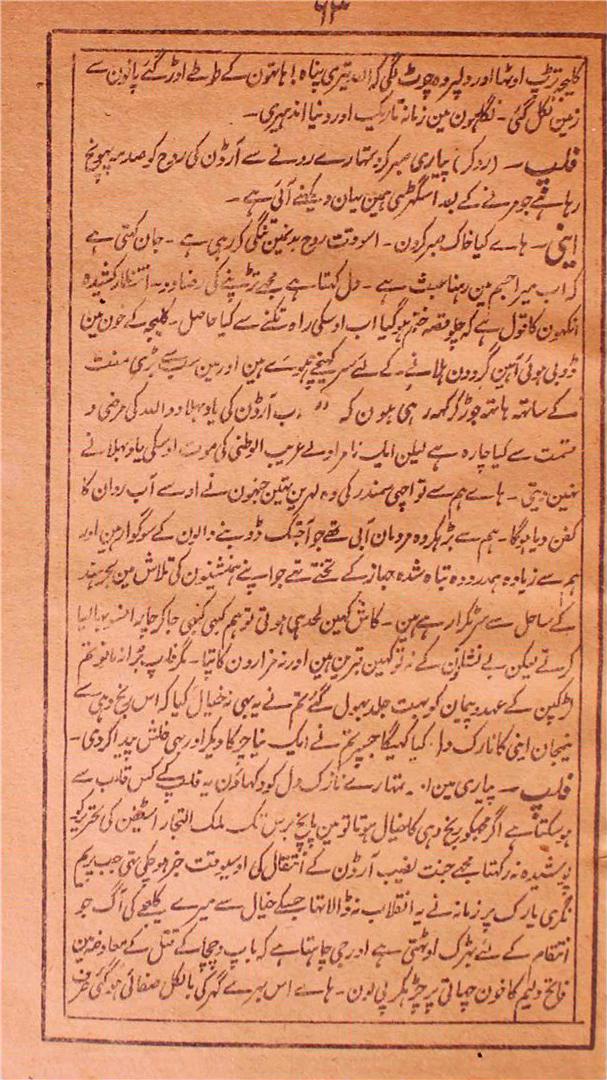 ۶۳
کلیجہ تڑپ اوٹھا اور دلپر وہ چوٹ لگی کہ اللہ تیری پناہ! ہاتھون کے طوطے اوڑ گئے پانون سے
زمین نکل گئی۔ نگاہون مین زمانہ تاریک اور دنیا اندہیری۔
فلپ۔ (روکر) پیاری صبر کرو تمہارے رونے سے آرڈن کی روح کو صدمہ پہونچ
رہا ہے جو مرنے کے بعد اسگھڑی ہمین یہان دیکھنے آئی ہے۔
اینی۔ ہاے کیا خاک صبر کرون۔ اسوقت روح بدنمین تنگی کر رہی ہے۔ جان کہتی ہے
کہ اب میرا جسم مین رہنا عبث ہے۔ دل کہتا ہے مجھے تڑپنے کی رضا دو۔ انتظار کشیدہ
آنکھون کا قول ہے کہ چلو قصہ ختم ہو گیا اب اوسکی راہ تکنے سے کیا حاصل۔ کلیجہ کے خون مین
ڈوبی ہوئی آہین گردون ہلانے کے لئے سر کھینچے ہوئے ہین اور مین سب سے بڑی منت
کے ساتھ ہاتھ جوڑ کر کہہ رہی ہون کہ اب آرڈن کی یاد بہلا دو اللہ کی مرضی و
قسمت سے کیا چارہ ہے لیکن ایک نامراد نے غریب الوطنی کی موت اوسکی یاد بہلانے
نہین دیتی۔ ہاے ہم سے تو اچھی سمندر کی وہ لہرین تہین جنہون نے اوسے آب روان کا
کفن دیا ہوگا۔ ہم سے بڑہکر وہ مردمان آبی تھے جو آجتک ڈوبنے والون کے سوگوار ہین اور
ہم سے زیادہ ہمدرد وہ تباہ شدہ جہاز کے تختے تھے جو اپنے ہمنشینون کی تلاش مین بحر ہند
کے ساحل سے سر ٹکرا رہے ہین۔ کاش کہین لحد ہی ہوتی تو ہم کبھی کبھی جا کر چار آنسو بہا لیا
کرتے لیکن بے نشانون کے نہ تو کہین قبرین ہین اور نہ مزارون کا پتا۔ مگر فلپ برا نہ مانو تم
لڑکپن کے عہد و پیمان کو بہت جلد بہول گئے تم نے یہ بھی نہ خیال کیا کہ اس رنج دہی سے
نیمجان اینی کا نازک دل کیا کہیگا جسپر تم نے ایک نیا چرکا دیکر اور بھی خلش پیدا کردی۔
فلپ۔ پیاری مین تمہارے نازک دل کو دکھاؤن یہ فلپ کے کس قلب سے
ہوسکتا ہے اگر مجھکو رنج دہی کا خیال ہوتا تو مین پانچ برس تک ملک التجار اسٹیفن کی تحریر کو
پوشیدہ نہ رکھتا مجھے جنت نصیب آرڈن کے انتقال کی اوسیوقت خبر ہو چکی تہی جب پریم
نگری یارک پر زمانہ نے یہ انقلاب نہ ڈالا تھا جسکے خیال سے میرے کلیجے کی آگ جو
انتقام کے لئے بہڑک اوٹھتی ہے اور جی چاہتا ہے کہ باپ و چچا کے قتل کے معاوضہ مین
فاتح ولیم کا خون چہاتی پر چڑہکر پی لون۔ ہاے اس بہرے گہر کی بالکل صفائی ہو گئی طرف